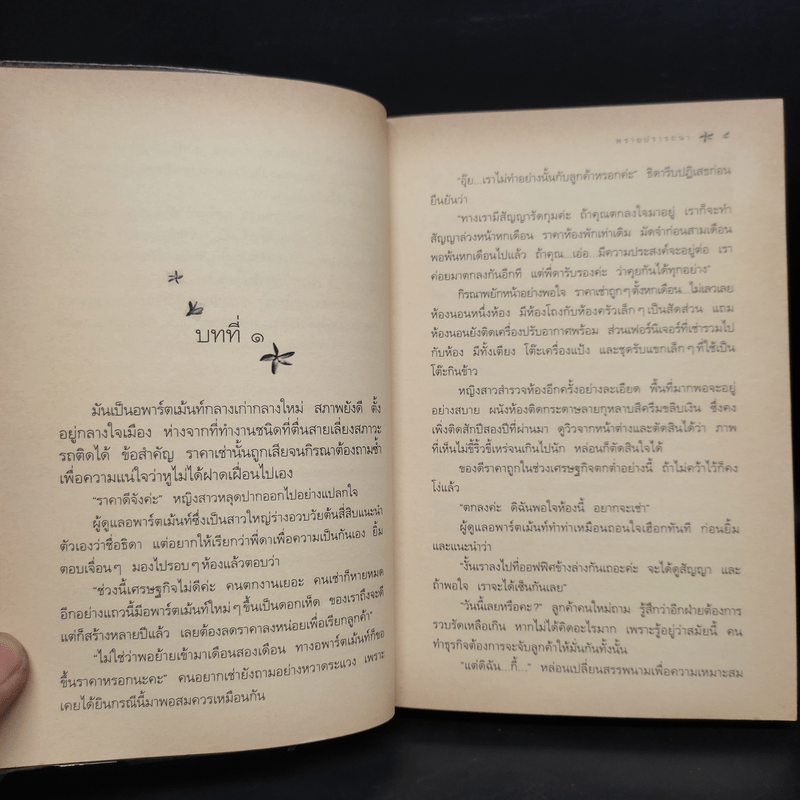 บทที่ ๑
มันเป็นอพาร์ตเม้นท์กลางเก่ากลางใหม่ สภาพยังดี ตั้ง
อยู่กลางใจเมือง ห่างจากที่ทำงานชนิดที่ตื่นสายเลี่ยงสภาวะ
รถติดได้ ข้อสำคัญ ราคาเช่านั้นถูกเสียจนกิรณาต้องถามซ้ำ
เพื่อความแน่ใจว่าหูไม่ได้ฝาดเฝื่อนไปเอง
“ราคาดีจังค่ะ” หญิงสาวหลุดปากออกไปอย่างแปลกใจ
ผู้ดูแลอพาร์ตเม้นท์ซึ่งเป็นสาวใหญ่ร่างอวบวัยต้นสี่สิบแนะนำ
ตัวเองว่าชื่อธิดา แต่อยากให้เรียกว่าพี่ดาเพื่อความเป็นกันเอง ยิ้ม
ตอบเจื่อนๆ มองไปรอบๆ ห้องแล้วตอบว่า
“ช่วงนี้เศรษฐกิจไม่ดีค่ะ คนตกงานเยอะ คนเช่าก็หายหมด
อีกอย่างแถวนี้มีอพาร์ตเม้นท์ใหม่ๆ ขึ้นเป็นดอกเห็ด ของเราถึงจะดี
แต่ก็สร้างหลายปีแล้ว เลยต้องลดราคาลงหน่อยเพื่อเรียกลูกค้า”
“ไม่ใช่ว่าพอย้ายเข้ามาเดือนสองเดือน ทางอพาร์ตเม้นท์ก็ขอ
ขึ้นราคาหรอกนะคะ” คนอยากเช่ายังถามอย่างหวาดระแวง เพราะ
เคยได้ยินกรณีนี้มาพอสมควรเหมือนกัน
พรายปรารถนา ๕
“อุ๊ย...เราไม่ทำอย่างนั้นกับลูกค้าหรอกค่ะ” ธิดารีบปฏิเสธก่อน
ยืนยันว่า
“ทางเรามีสัญญารัดกุมค่ะ ถ้าคุณตกลงใจมาอยู่ เราก็จะทำ
สัญญาล่วงหน้าหกเดือน ราคาห้องพักเท่าเดิม มัดจำก่อนสามเดือน
พอพ้นหกเดือนไปแล้ว ถ้าคุณ...เอ่อ...มีความประสงค์จะอยู่ต่อ เรา
ค่อยมาตกลงกันอีกที แต่พี่ดารับรองค่ะ ว่าคุยกันได้ทุกอย่าง”
กิรณาพยักหน้าอย่างพอใจ ราคาเช่าถูกๆ ตั้งหกเดือน...ไม่เลวเลย
ห้องนอนหนึ่งห้อง มีห้องโถงกับห้องครัวเล็กๆ เป็นสัดส่วน แถม
ห้องนอนยังติดเครื่องปรับอากาศพร้อม ส่วนเฟอร์นิเจอร์ที่เช่ารวมไป
กับห้อง มีทั้งเตียง โต๊ะเครื่องแป้ง และชุดรับแขกเล็กๆ ที่ใช้เป็น
โต๊ะกินข้าว
หญิงสาวสำรวจห้องอีกครั้งอย่างละเอียด พื้นที่มากพอจะอยู่
อย่างสบาย ผนังห้องติดกระดาษลายกุหลาบสีครีมขลิบเงิน ซึ่งคง
เพิ่งติดสักปีสองปีที่ผ่านมา ดูวิวจากหน้าต่างและตัดสินได้ว่า ภาพ
ที่เห็นไม่ขี้ริ้วขี้เหร่จนเกินไปนัก หล่อนก็ตัดสินใจได้
ของดีราคาถูกในช่วงเศรษฐกิจตกต่ำอย่างนี้ ถ้าไม่คว้าไว้ก็คง
โง่แล้ว
“ตกลงค่ะ ดิฉันพอใจห้องนี้ อยากจะเช่า”
ผู้ดูแลอพาร์ตเม้นท์ทำท่าเหมือนถอนใจเฮือกทันที ก่อนยิ้ม
และแนะนำว่า
“งั้นเราลงไปที่ออฟฟิศข้างล่างกันเถอะค่ะ จะได้ดูสัญญา และ
ถ้าพอใจ เราจะได้เซ็นกันเลย”
“วันนี้เลยหรือคะ?” ลูกค้าคนใหม่ถาม รู้สึกว่าอีกฝ่ายต้องการ
รวบรัดเหลือเกิน หากไม่ได้คิดอะไรมาก เพราะรู้อยู่ว่าสมัยนี้ คน
ทำธุรกิจต้องการจะจับลูกค้าให้มั่นกันทั้งนั้น
“แต่ดิฉัน...กี้...” หล่อนเปลี่ยนสรรพนามเพื่อความเหมาะสม